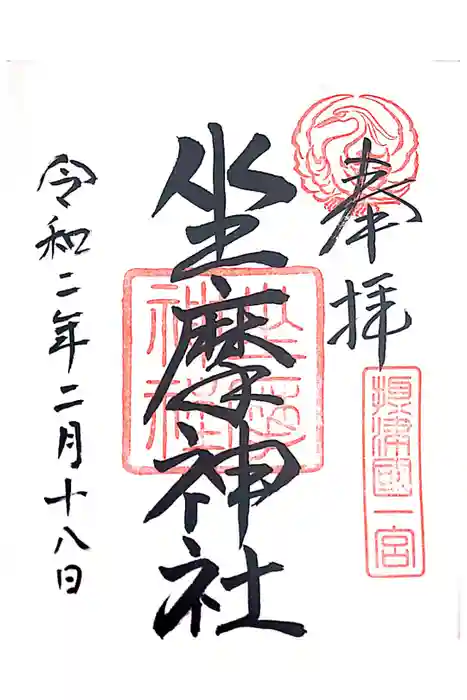 奉拝
摂津國一宮
坐摩神社
令和二年二月十八日